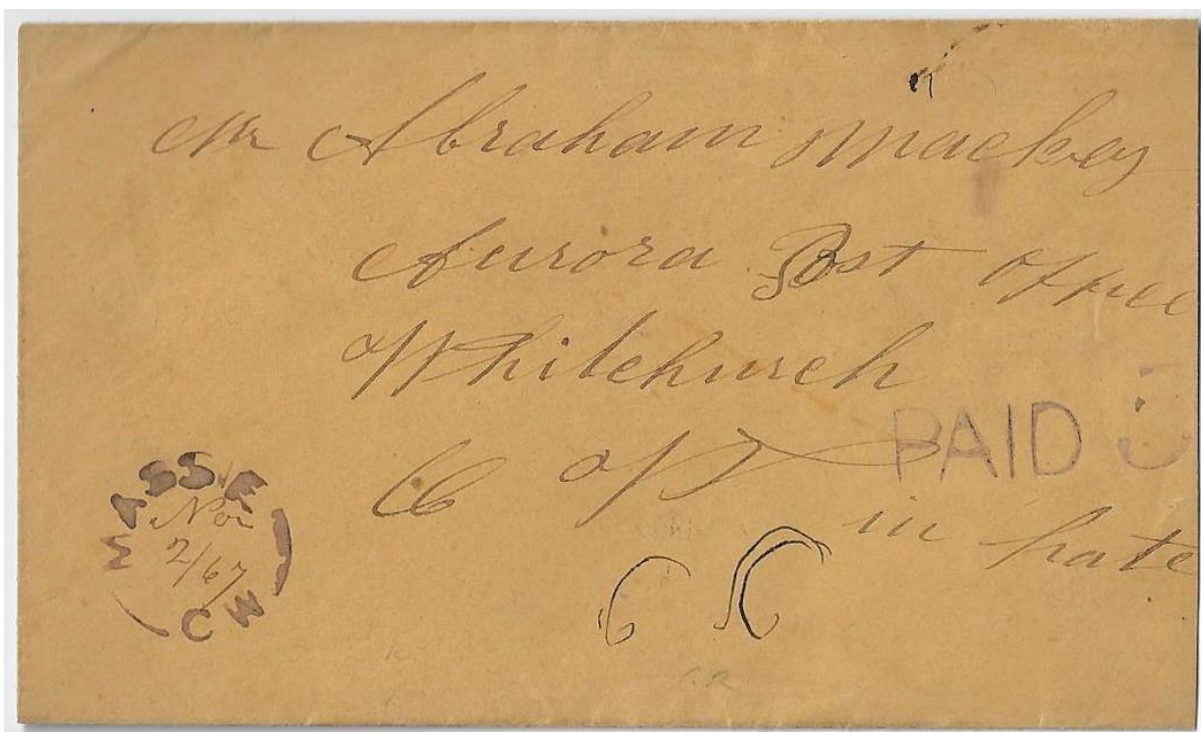 Mr Abraham Mackey
Aurora Post office
Whitchurch
C W
PAID
in hate
MASSIE
Nov
2/67
CW